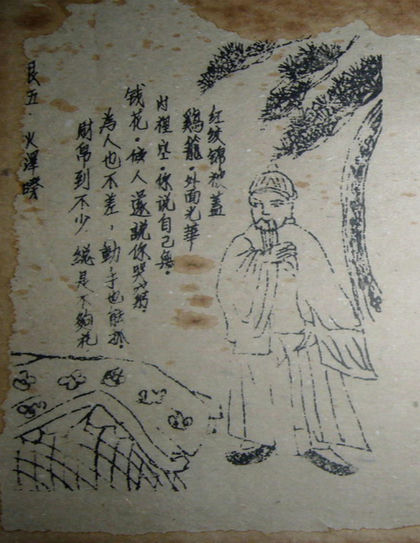 红绫锦被盖
鷄籠·外面光華
内裡空·你說自己無
钱花·傍人還說你哭窮
為人也不差，動手也能抓·
財帛到不少 總是不夠花
艮五·火澤睽